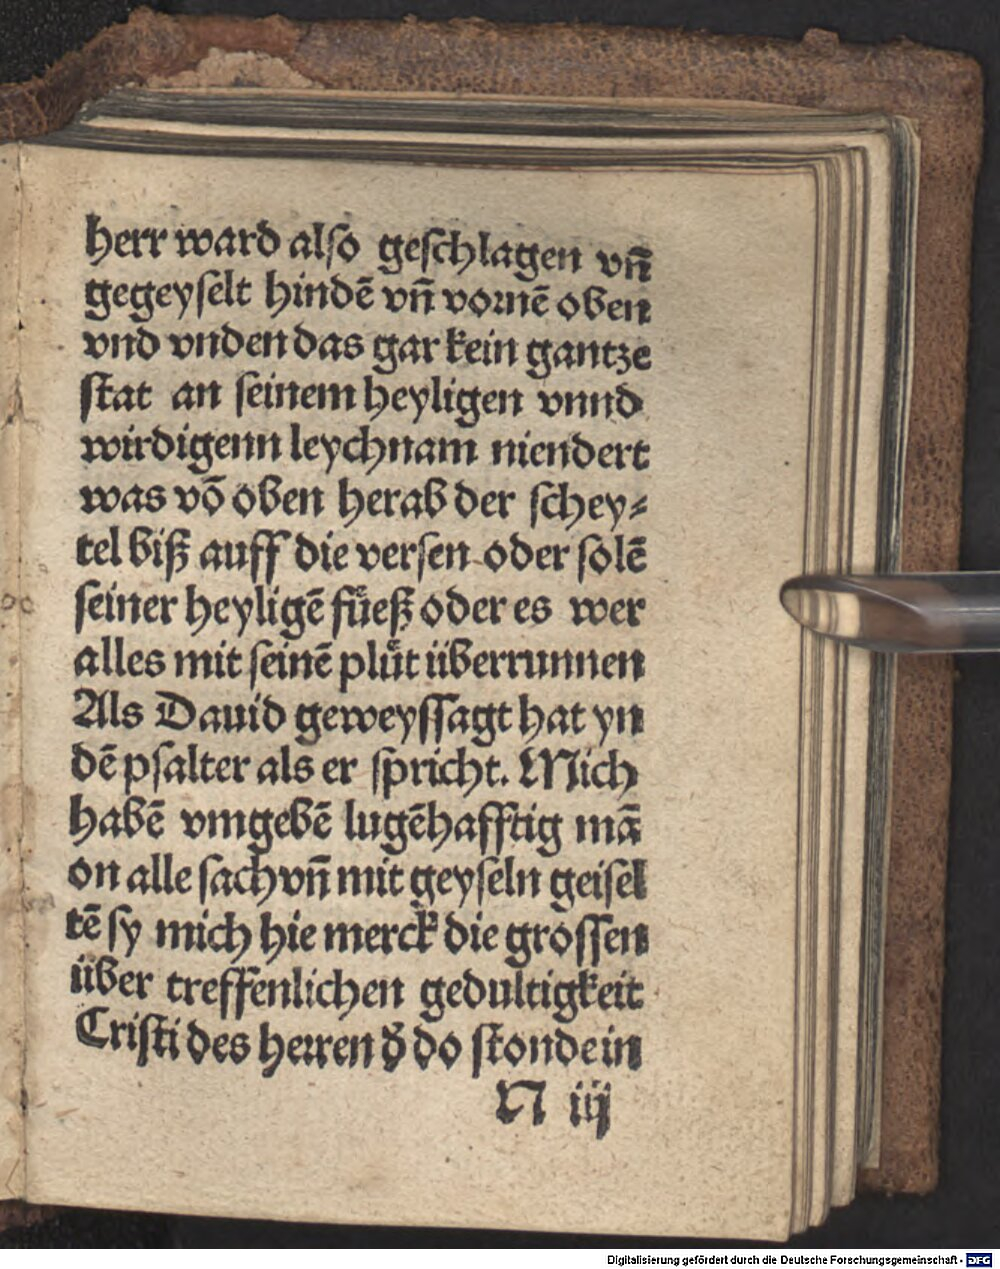 herr ward also geschlagen vñ
gegeyselt hindē vñ vornē oben
vnd vnden das gar kein gantze
stat an seinem heyligen vnnd
wirdigenn leychnam niendert
was vō oben herab der schey⸗
tel biß auff die versen oder solē
seiner heyligē fuͤeß oder es wer
alles mit seinē pluͤt überrunnen
Als Dauid geweyssagt hat yn
dē psalter als er spricht. Mich
habē vmgebē lugēhafftig mā
on alle sach vñ mit geyseln geisel
tē sy mich hie merck die grossen
über treffenlichen gedultigkeit
Cristi des herren d̕ do stonde in
N iij
Digitalisierung gefördert durch die Deutsche Forschungsgemeinschaft - DFG